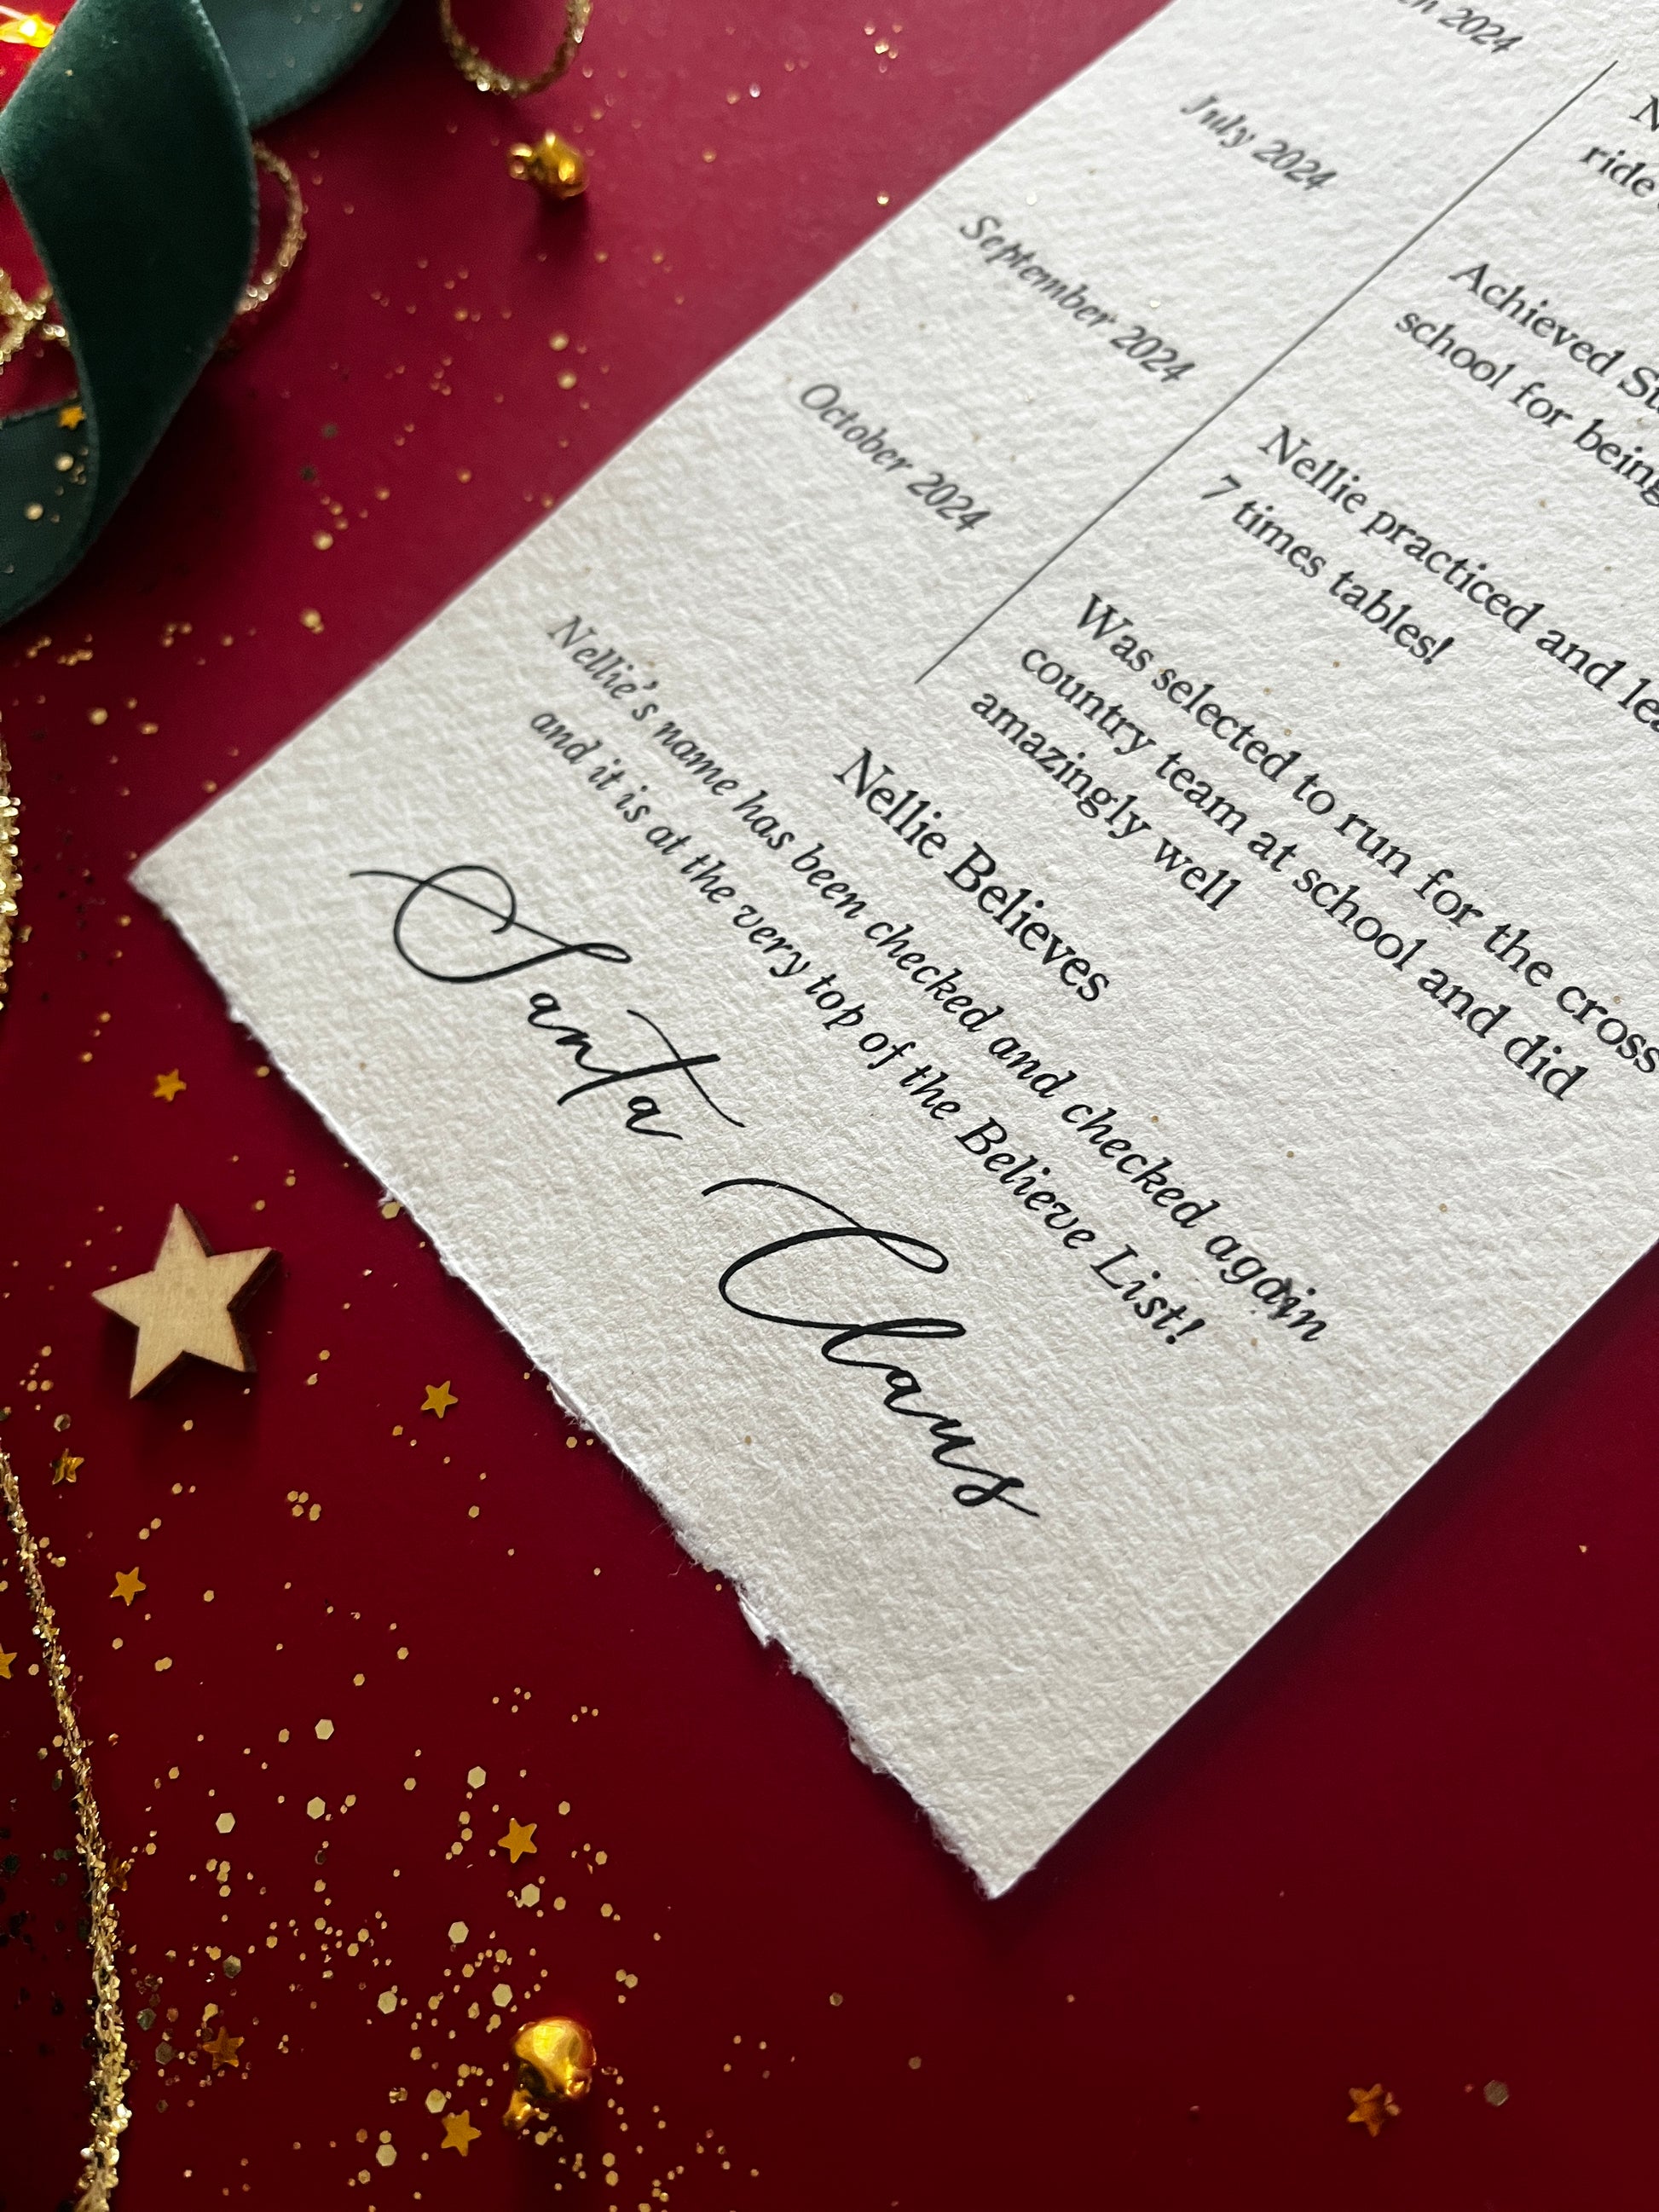 2024
July 2024
September 2024
October 2024
ride
Achieved
school for being
Nellie practiced and
7 times tables!
Was selected to run for the cross
country team at school and did
amazingly well
Nellie Believes
Nellie's name has been checked and checked again
and it is at the very top of the Believe List!
Santa Claus